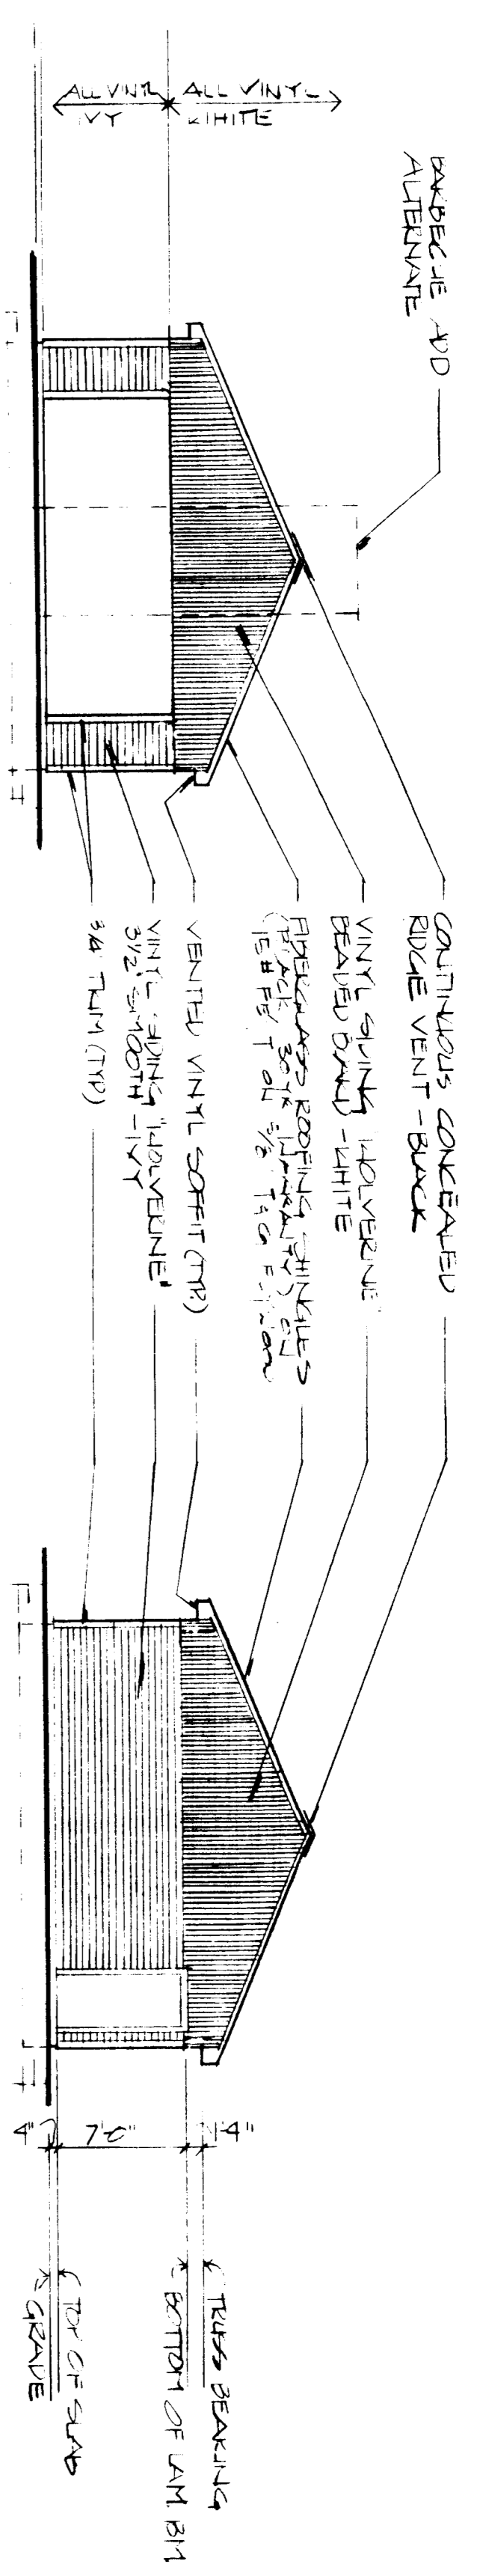 BARBECUE ADD
ALTERNATE
ALL VINYL
WHITE
ALL VINYL
IVY
CONTINUOUS CONCEALED
RIDGE VENT - BLACK
VINYL SIDING "WOLVERINE"
BEADED - WHITE
FIBERGLASS ROOFING SHINGLES
(BLACK 30 YR WARRANTY) ON
15# FELT ON 1/2" T&G
VENTED VINYL SOFFIT (TYP)
VINYL SIDING "WOLVERINE"
3 1/2" SMOOTH - IVY
TRIM (TYP)
4"
7'-0"
1'-4"
TRUSS BEARING
BOTTOM OF LAM. BM
TOP OF SLAB
GRADE